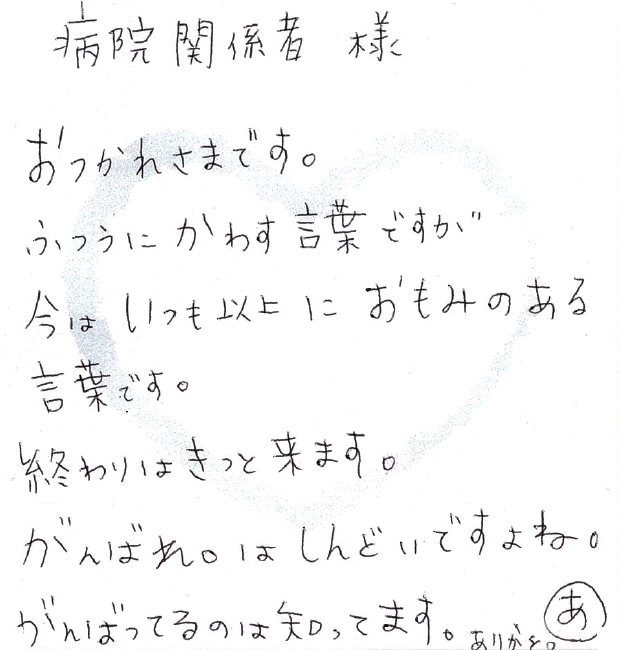 病院関係者 様
おつかれさまです。
ふつうにかわす言葉ですが
今はいつも以上におもみのある
言葉です。
終わりはきっと来ます。
がんばれ。はしんどいですよね。
がんばってるのは知ってます。ありがと。あ